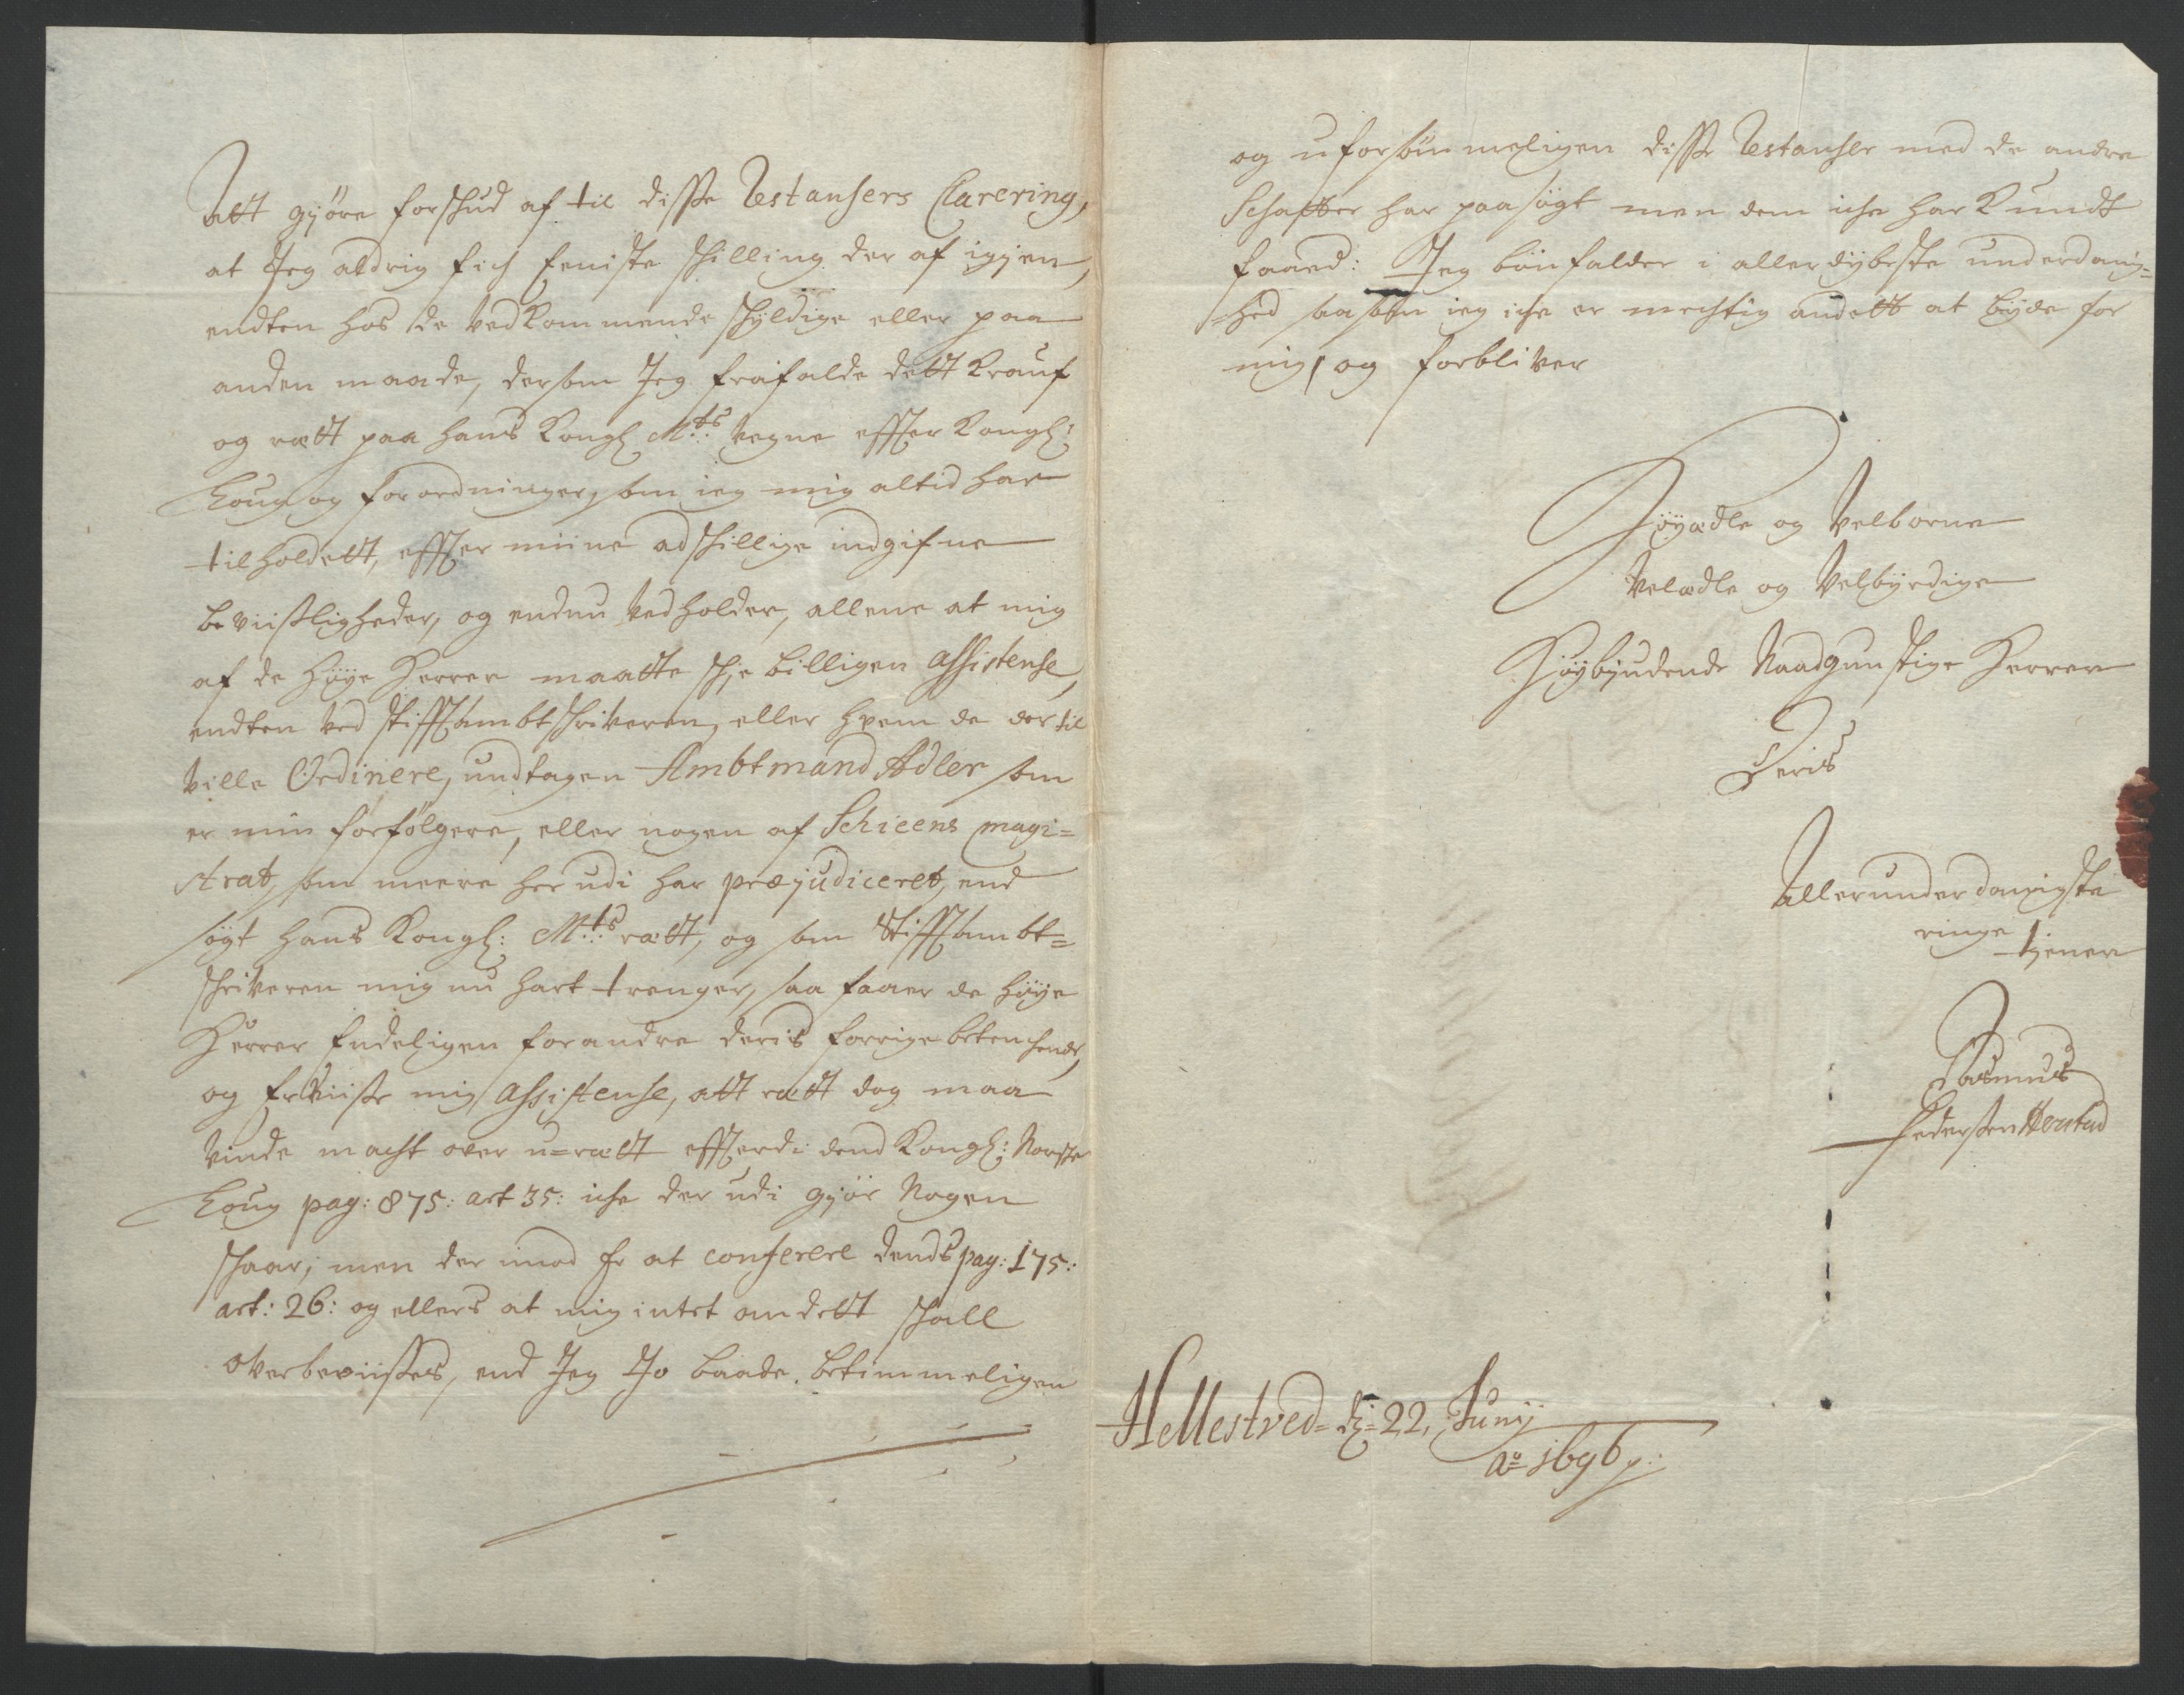 att gjöre forschud af til disse Restansers Clarering,
at Jeg aldrig fich seniste schilling der af igjen,
endten hos de vedkommende schyldige eller paa
anden maade, dersom Jeg frafalde dett krauf
og rætt paa hans Kongl Mts: vegne effter Kongl:
Loug og forordninger, som ieg mig altid har
tilholdett, effter miine adschillige indgifne
beviisligheder, og endnu vedholder, allene at mig
af de höye Herrer maatte sche billigen assistense,
endten ved stifftsambtschriveren, eller hvem de der til
ville Ordinere, undtagen Ambtmand Adler som
er min forfölgere, eller nogen af Schieens magi=
strat, som meere her udi har præjudiceret, end
sögt hans Kongl: Mts: rætt, og som Stifftsambt=
schriveren mig nu hart trenger, saa faaer de höye
Herrer endeligen forandre deris forrige betenchende,
og erviise mig assistense, att rætt dog maa
vinde macht over u=rætt effterdi dend Kongl: Norske
Loug pag: 875: art 35: iche der udi gjör Nogen
schaar, men der imod er at conferere dends pag: 175:
art: 26: og ellers at mig intet andett schall
overbeviises, end Jeg Jo baade betimmeligen
og uforsömmeligen disse Restanser med de andre
Schatter har paasögt men dem iche har kundt
faaed: Jeg bönfalder i allerdybeste underdanig=
=hed saasom ieg iche er mechtig andett at byde for
mig, og forbliver
Höyædle og Velborne
Velædle og Velbyrdige
Höybydende Naadgunstige Herrer
Deris
Allerunderdanigste
ringe tjener
Rasmus
Pedersen Herstad
Hellestved= d: 22, Juny
Ao 1696